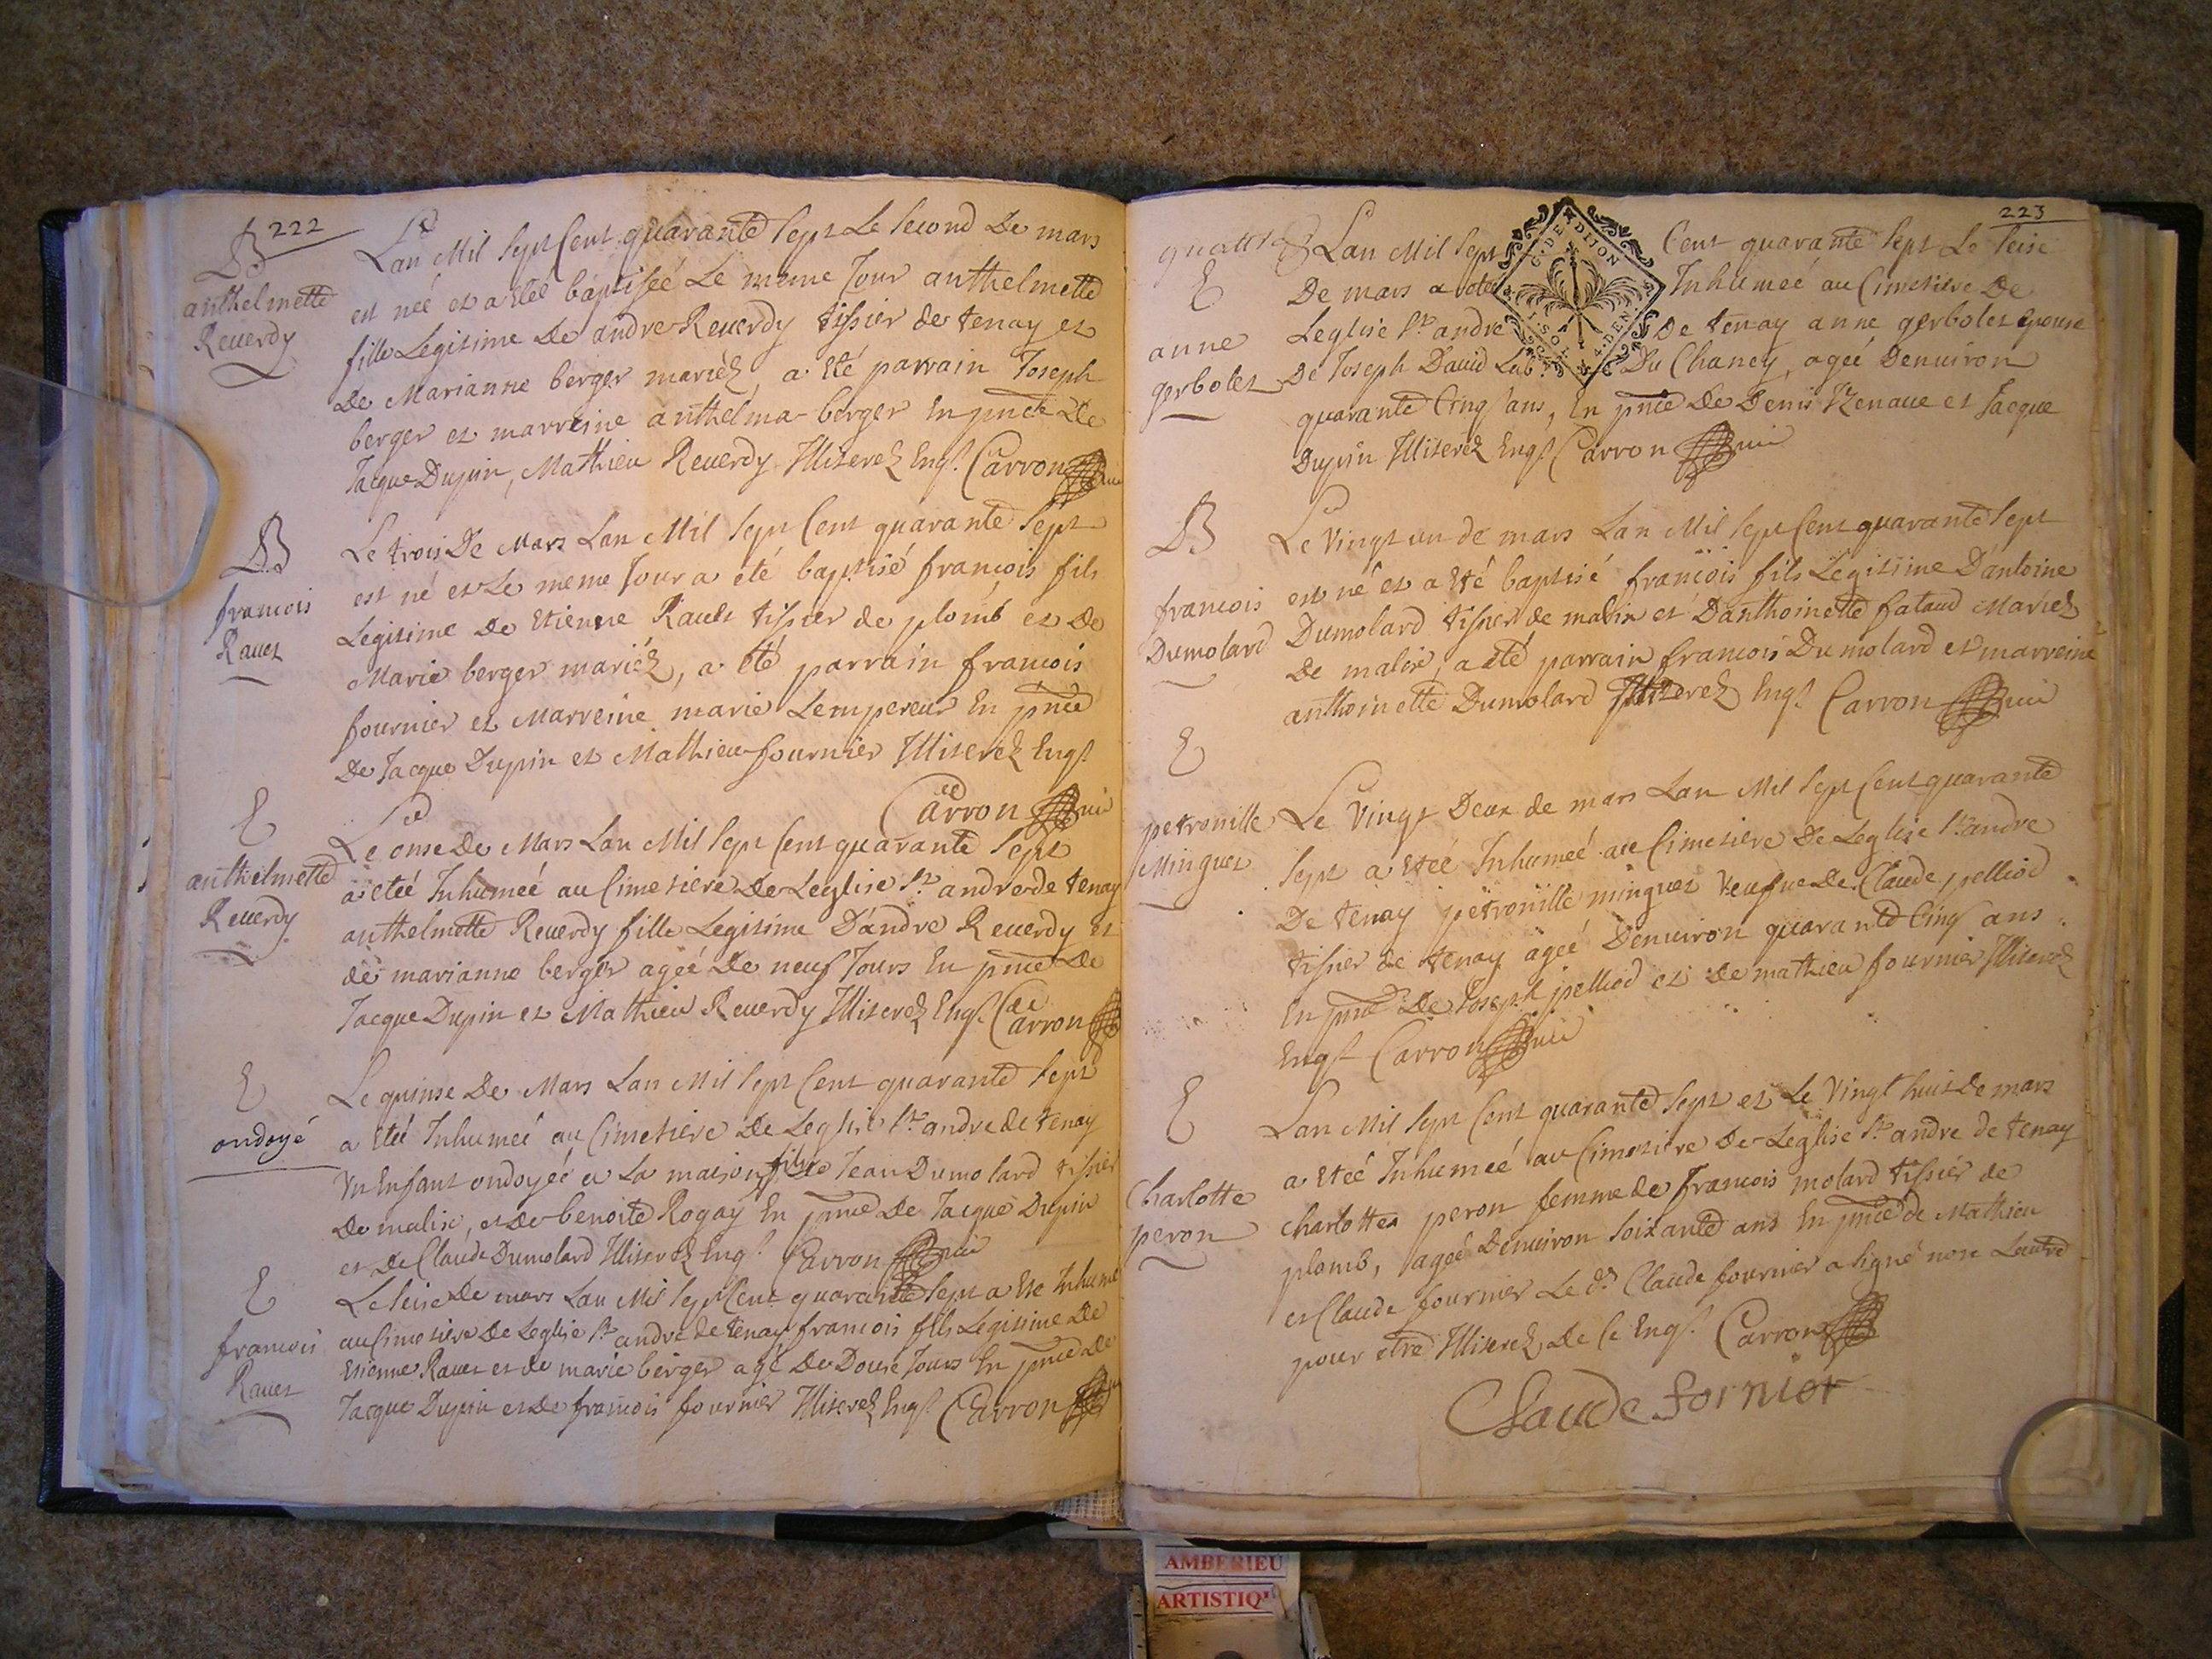 222
B
anthelmette
Reuerdy
Lan Mil Sept Cent quarante Sept Le Second De mars
est née et a etée baptisée Le meme Jour anthelmette
fille Legitime De andre Reuerdy tissier de tenay et
De Marianne berger mariéz, a été parrain Joseph
berger et marreine anthelma berger En pnce De
Jacque Dupin, Mathieu Reuerdy Illiterez Enqs. Carron
B
francois
Rauet
Le trois De Mars Lan Mil Sept Cent quarante Sept
est né et Le meme Jour a été baptisé francois fils
Legitime De Etienne Rauet tissier de plomb et De
Marie berger mariéz, a été parrain francois
fournier et Marreine marie Lempereur En pnce
De Jacque Dupin et Mathieu fournier Illiterez Enqs
Carron
E
anthelmette
Reuerdy
Le onse De Mars Lan Mil Sept Cent quarante Sept
a etée Inhumée au Cimetiere De Leglise St andre de tenay
anthelmette Reuerdy fille Legitime D'andre Reuerdy et
de marianne berger agée De neuf Jours En pnce De
Jacque Dupin et Mathieu Reuerdy Illiterez Enqs. Carron
E
ondoyé
Le quinse De Mars Lan Mil Sept Cent quarante Sept
a etée Inhumée au Cimetiere De Leglise St andre de tenay
Vn Enfant ondoyée a La maison fils de Jean Dumolard tissier
De malix, et De benoite Rogay En pnce De Jacque Dupin
et De Claude Dumolard Illiterez Enqs. Carron
E
francois
Rauet
Le seise De mars Lan Mil Sept Cent quarante Sept a ete Inhumé
au Cimetiere De Leglise St andre de tenay francois fils Legitime De
Etienne Rauet et de marie berger agé De Douse Jours En pnce De
Jacque Dupin et De francois fournier Illiterez Enqs Carron
223
quatre
E
anne
gerbolet
G. DE DIJON
4. DEN
Lan Mil Sept Cent quarante Sept Le Seise
De mars a etée Inhumée au Cimetiere De
Leglise St. andre De tenay anne gerbolet epouse
De Joseph Dauid Lab. Du Chaney, agée Denuiron
quarante Cinq ans, En pnce De Denis Venaue et Jacque
Dupin Illiterez Enqs Carron
B
francois
Dumolard
Le Vingt un de mars Lan Mil Sept Cent quarante Sept
est né et a été baptisé francois fils Legitime D'antoine
Dumolard tissier de malix et D'anthoinette fataud Mariéz
De malix, a été parrain francois Dumolard et marreine
anthoinette Dumolard Illiterez Enqs Carron
E
petronille
Minguet
Le Vingt Deux de mars Lan Mil Sept Cent quarante
Sept a etée Inhumée au Cimetiere De Leglise St andre
De tenay petronille minguet Veufue De Claude pelliod
tissier de tenay agée Denuiron quarante Cinq ans
En pnce De Joseph pelliod et de mathieu fournier Illiterez
Enqs Carron
E
Charlotte
peron
Lan Mil Sept Cent quarante Sept et Le Vingt huit De mars
a etée Inhumée au Cimetiere De Leglise St andre de tenay
charlotte peron femme de francois molard tissier de
plomb, agée Denuiron Soixante ans En pnce de Mathieu
et Claude fournier Le dt Claude fournier a signé non Lautre
pour etre Illiterez De Ce Enqs. Carron
Claude fornier
AMBERIEU
ARTISTIQ